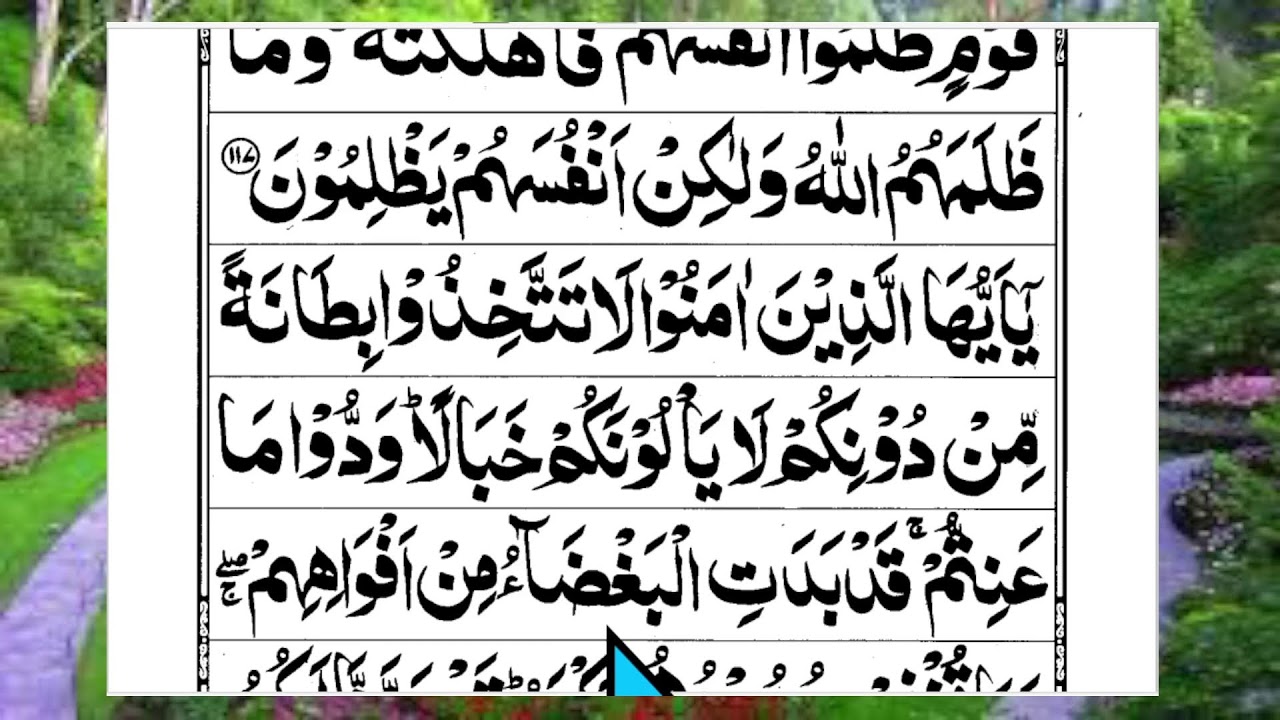 قَوْمٍ ظَلَمُوْۤا اَنْفُسَهُمْ فَاَهْلَكَتْهُ ؕ وَمَا
ظَلَمَهُمُ اللّٰهُ وَلٰكِنْ اَنْفُسَهُمْ يَظْلِمُوْنَ ﴿۱۱۷﴾
يٰۤاَيُّهَا الَّذِيْنَ اٰمَنُوْا لَا تَتَّخِذُوْا بِطَانَةً
مِّنْ دُوْنِكُمْ لَا يَاْلُوْنَكُمْ خَبَالًا ؕ وَدُّوْا مَا
عَنِتُّمْ ۚ قَدْ بَدَتِ الْبَغْضَآءُ مِنْ اَفْوَاهِهِمْ ۖۚ